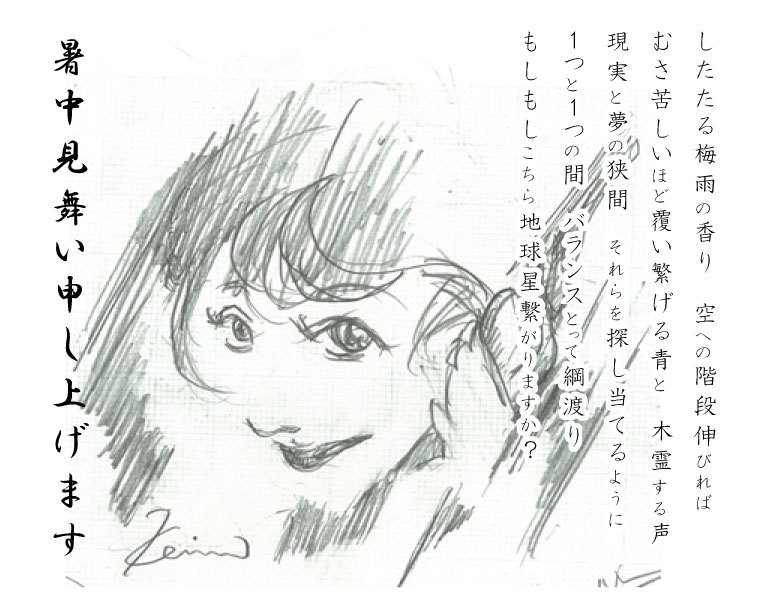 したたる梅雨の香り　空への階段伸びれば
むさ苦しいほど覆い繁げる青と　木霊する声
現実と夢の狭間　それらを探し当てるように
1つと1つの間　バランスとって綱渡り
もしもしこちら地球星繋がりますか？
暑中見舞い申し上げます